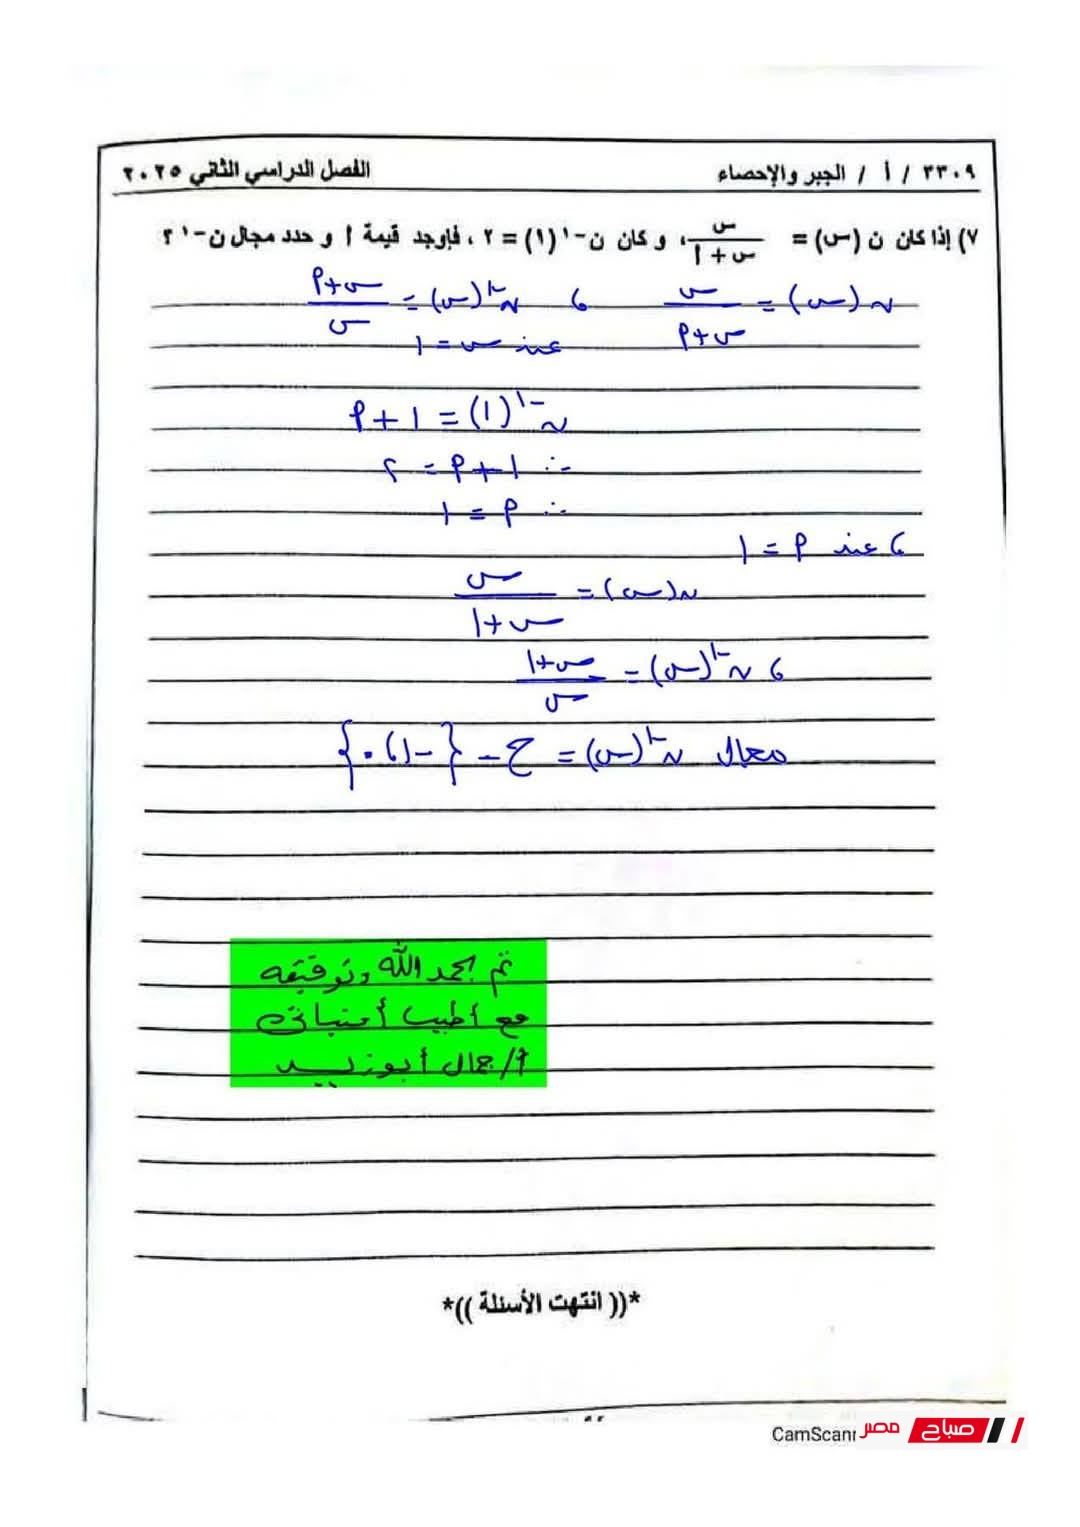 ٣٣٠٩ / أ / الجبر والإحصاء الفصل الدراسي الثاني ٢٠٢٥
٧) إذا كان ن (س) = س / س + أ ، و كان ن⁻¹ (١) = ٢ ، فاوجد قيمة أ و حدد مجال ن⁻¹ ؟
ن (س) = س / س + أ ، ن⁻¹ (س) = س + أ / س
عند س = ١
ن⁻¹ (١) = ١ + أ
∴ ١ + أ = ٢
∴ أ = ١
، عند أ = ١
ن (س) = س / س + ١
، ن⁻¹ (س) = س + ١ / س
مجال ن⁻¹ (س) = ح - {-١ ، ٠}
تم بحمد الله وتوفيقه
مع أطيب أمنياتى
أ/ جمال أبوزيد
*(( انتهت الأسئلة ))*
CamScanr
صباح مصر